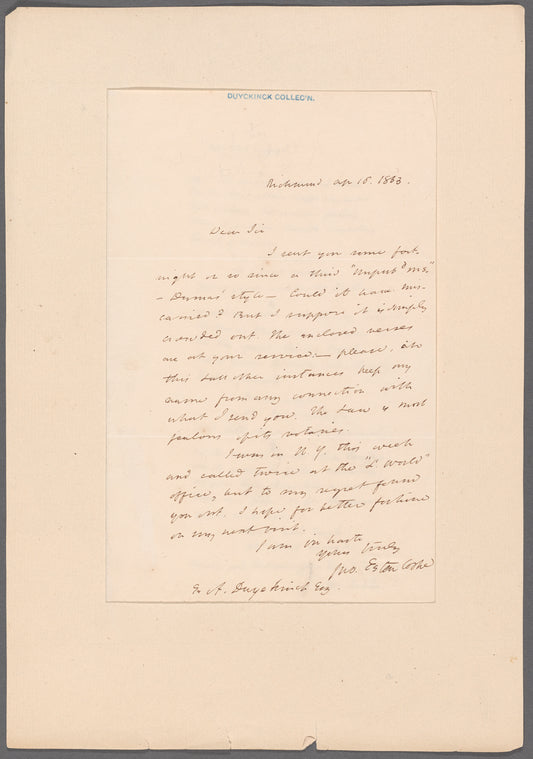 DUYCKINCK COLLEC'N.
Richmond ap 16. 1853.
Dear Sir
I sent you some fort-
night or so since a third "Unpubd ms."
- Dumas' style - Could it have mis-
carried? But I suppose it is simply
crowded out. The enclosed verses
are at your service:- please, in
this & all other instances keep my
name from any connection with
what I send you. The Law is most
jealous of its votaries.
I was in N. Y. this week
and called twice at the "L. World"
office, but to my regret found
you out. I hope for better fortune
on my next visit.
I am in haste
Yours truly
Jno. Esten Cooke
E. A. Duyckinck Esq.